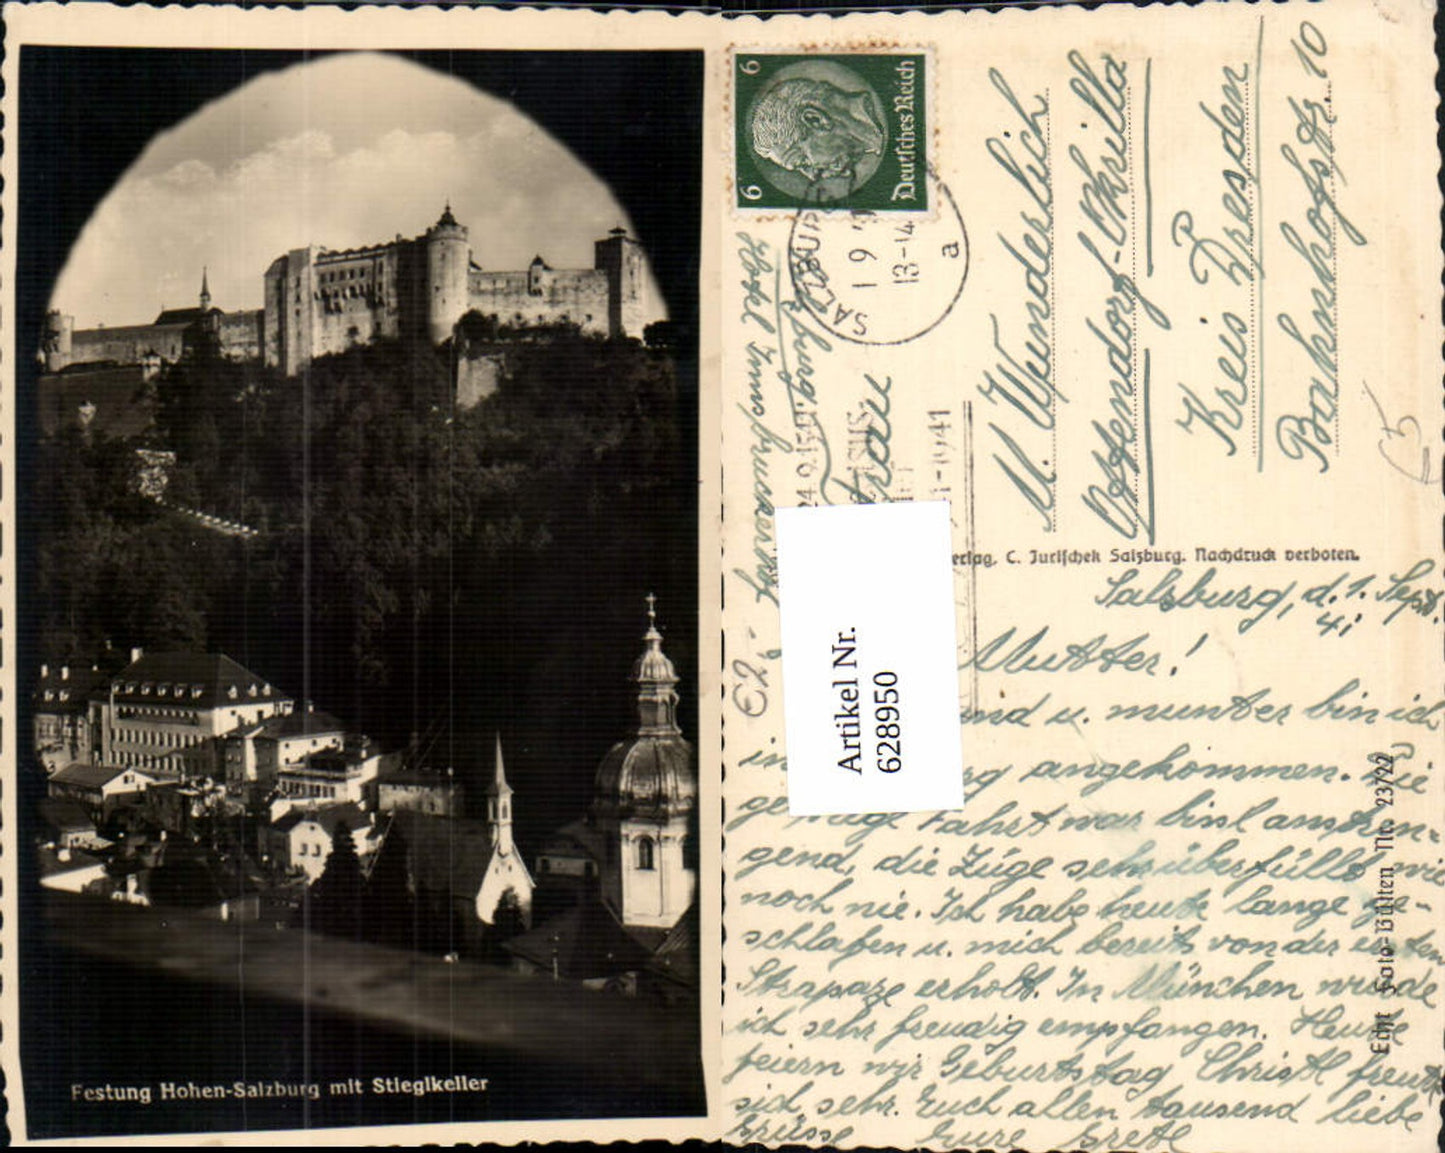 Festung Hohen-Salzburg mit Stieglkeller
6
6
Deutsches Reich
SALZBURG
1 9
13-14
a
1941
Frau
M. Wunderlich
Ottendorf-Okrilla
Kreis Dresden
Bahnhofstr. 10
Hotel Innsbruckerhof
Artikel Nr.
628950
erlag. C. Jurischek Salzburg. Nachdruck verboten.
Echt Foto-Bütten Nr. 23/22
Salzburg, d. 1. Sept.
41
Mutter!
und u. munter bin ich
angekommen. Die
Fahrt war bissl anstren-
gend, die Züge sehr überfüllt wie
noch nie. Ich habe heute lange ge-
schlafen u. mich bereits von der ersten
Strapaze erholt. In München wurde
ich sehr freudig empfangen. Heute
feiern wir Geburtstag Christl freut
sich sehr. Euch allen tausend liebe
Grüsse Eure Gretl